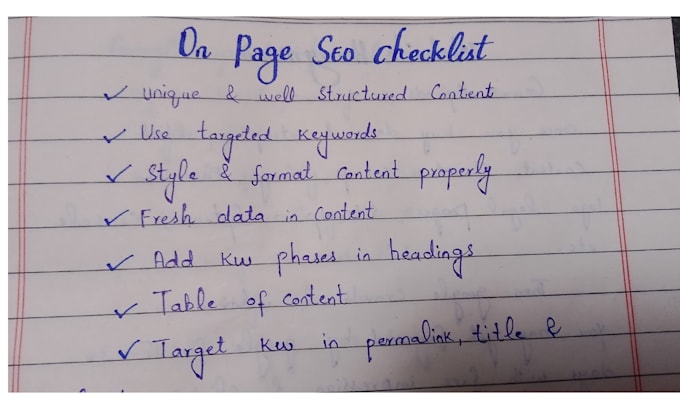 On Page SEO checklist
✓ unique & well structured Content
✓ Use targeted keywords
✓ Style & format Content properly
✓ Fresh data in Content
✓ Add kw phases in headings
✓ Table of Content
✓ Target kw in permalink, title &